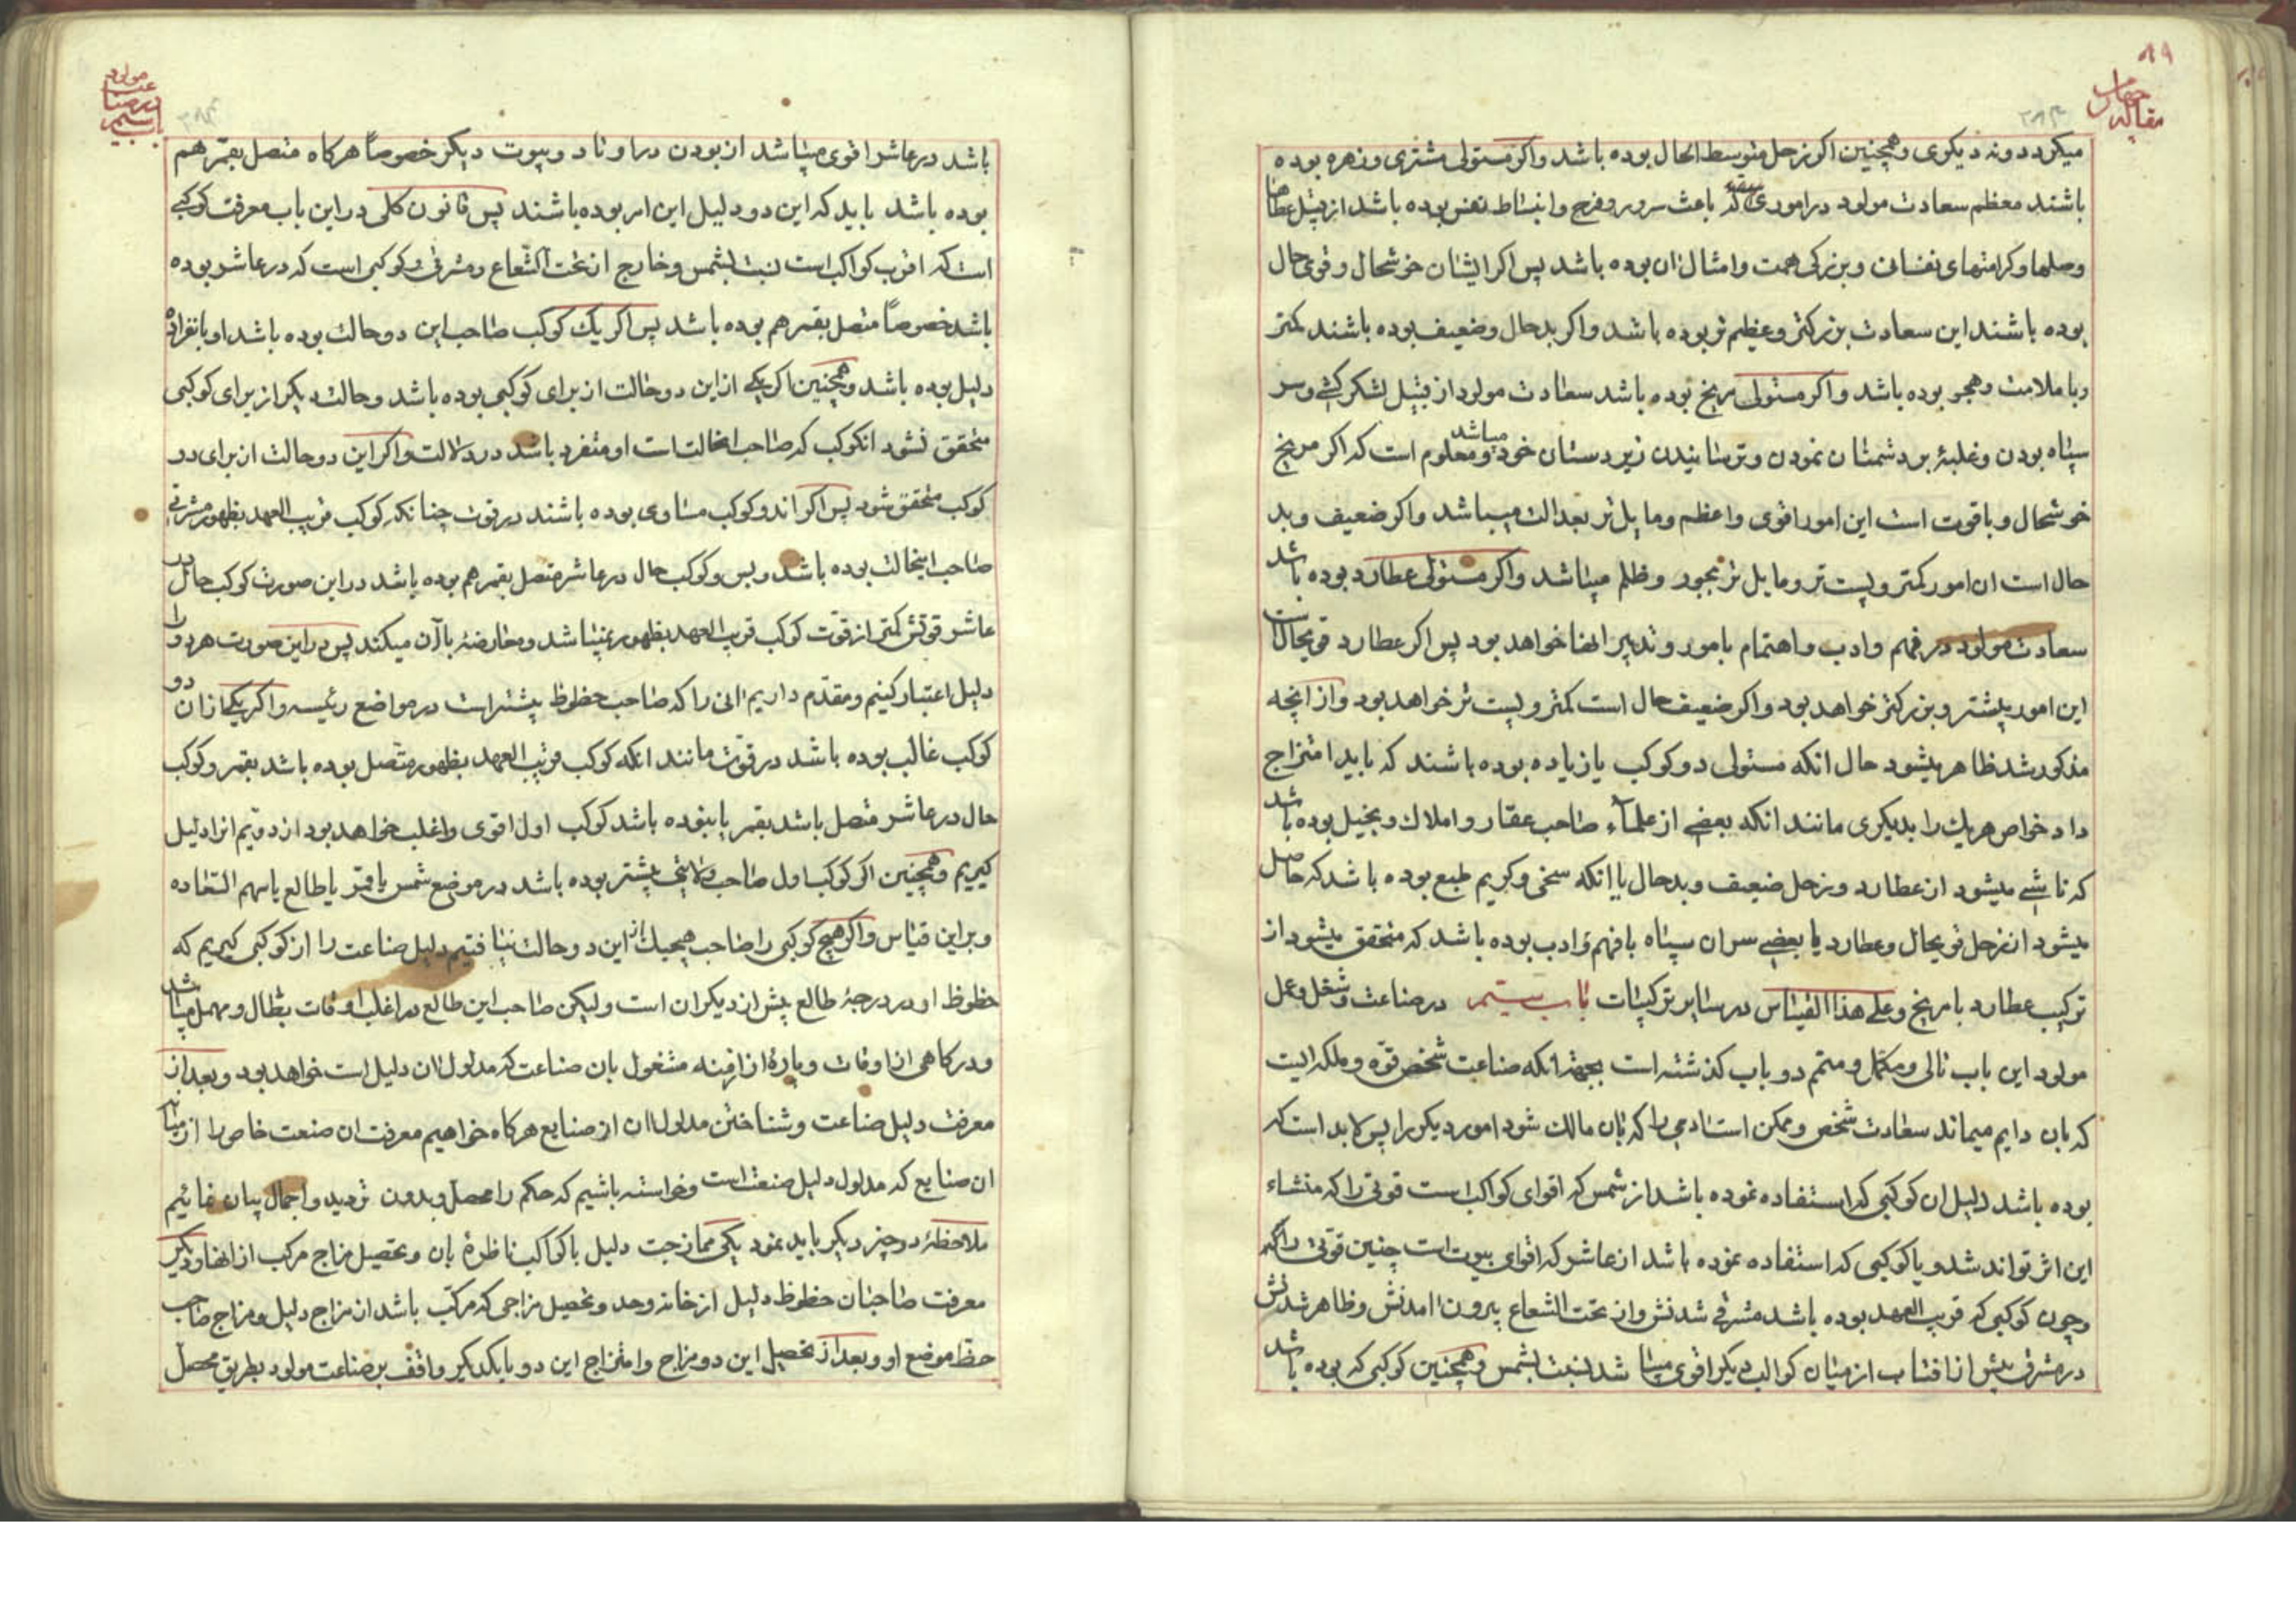 ۸۹
مقاله چهارم
میکردد ونه دیکری وهمچنین اکر زحل متوسط الحال بوده باشد واکر مستولی مشتری وزهره بوده
باشند معظم سعادت مولود در اموری که باعث سرور وفرح وانبساط نفس بوده باشد از قبیل عطاها
وصلها وکرامتهای نفسانی وبزرکی همت وامثال ان بوده باشد پس اکر ایشان خوشحال وقوی حال
بوده باشند این سعادت بزرکتر وعظیم تر بوده باشد واکر بدحال وضعیف بوده باشند کمتر
وبا ملامت وهجو بوده باشد واکر مستولی مریخ بوده باشد سعادت مولود از قبیل لشکر کشی وسر
سپاه بودن وغلبهٔ بر دشمنان نمودن وترسانیدن زیر دستان خود میباشد ومعلوم است که اکر مریخ
خوشحال وباقوت است این امور اقوی واعظم ومایل تر بعدالت میباشد واکر ضعیف وبد
حال است ان امور کمتر وپست تر ومایل تر بجور وظلم میباشد واکر مستولی عطارد بوده باشد
سعادت مولود در فهم وادب واهتمام بامور وتدبیر انها خواهد بود پس اکر عطارد قویحال است
این امور بیشتر وبزرکتر خواهد بود واکر ضعیف حال است کمتر وپست تر خواهد بود واز انچه
مذکور شد ظاهر میشود حال انکه مستولی دو کوکب یا زیاده بوده باشند که باید امتزاج
داد خواص هریک را بدیکری مانند انکه بعضی از علماء صاحب عقار واملاک وبخیل بوده باشد
که ناشی میشود از عطارد وزحل ضعیف وبدحال یا انکه سخی وکریم طبع بوده باشد که حاصل
میشود از زحل قویحال وعطارد یا بعضی سران سپاه بافهم وادب بوده باشد که متحقق میشود از
ترکیب عطارد با مریخ وعلی هذا القیاس در سایر ترکیبات باب سیم در صناعت وشغل وعمل
مولود این باب تالی ومکمل ومتمم دو باب کذشته است بجهة انکه صناعت شخص قوه وملکه ایست
که بان دایم میماند سعادت شخص وممکن است ادمی را که بان مالک شود امور دیکر را پس لابد است که
بوده باشد دلیل ان کوکبی که استفاده نموده باشد از شمس که اقوای کواکب است قوتی را که منشاء
این اثر تواند شد ویا کوکبی که استفاده نموده باشد از عاشر که اقوای بیوت است چنین قوتی را
وچون کوکبی که قریب العهد بوده باشد مشرقی شدنش واز تحت الشعاع بیرون امدنش وظاهر شدنش
در مشرق پیش از افتاب از میان کواکب دیکر اقوی میباشد نسبت بشمس وهمچنین کوکبی که بوده باشد
باب سیم در صناعت مولود
باشد در عاشر اقوی میباشد از بودن در اوتاد وبیوت دیکر خصوصاً هرکاه متصل بقمر هم
بوده باشد باید که این دو دلیل این امر بوده باشند پس قانون کلی در این باب معرفت کوکبی
است که اقرب کواکب است نسبت بشمس وخارج از تحت الشعاع ومشرقی وکوکبی است که در عاشر بوده
باشد خصوصاً متصل بقمر هم بوده باشد پس اکر یک کوکب صاحب این دو حالت بوده باشد او بانفراده
دلیل بوده باشد وهمچنین اکر یکی از این دو حالت از برای کوکبی بوده باشد وحالت دیکر از برای کوکبی
متحقق نشود انکوکب که صاحب انحالتست او منفرد باشد در دلالت واکر این دو حالت از برای دو
کوکب متحقق شود پس اکر اندو کوکب مساوی بوده باشند در قوت چنانکه کوکب قریب العهد بظهور مشرقی
صاحب اینحالت بوده باشد وبس وکوکب حال در عاشر متصل بقمر هم بوده باشد در این صورت کوکب حال در
عاشر قوتش کمتر از قوت کوکب قریب العهد بظهور نمیباشد ومعارضهٔ با آن میکند پس در این صورت هر دو را
دلیل اعتبار کنیم ومقدم داریم انی را که صاحب حظوظ بیشتر است در مواضع رئیسه واکر یکی از ان دو
کوکب غالب بوده باشد در قوت مانند انکه کوکب قریب العهد بظهور متصل بوده باشد بقمر وکوکب
حال در عاشر متصل باشد بقمر یا نبوده باشد کوکب اول اقوی واغلب خواهد بود از دویم انرا دلیل
کیریم وهمچنین اکر کوکب اول صاحب ولایتی بیشتر بوده باشد در موضع شمس یا قمر یا طالع یا سهم السعاده
وبر این قیاس واکر هیچ کوکبی را صاحب هیچیک از این دو حالت نیافتیم دلیل صناعت را از کوکبی کیریم که
حظوظ او در درجهٔ طالع بیش از دیکران است ولیکن صاحب این طالع در اغلب اوقات بطال ومهمل میباشد
ودر کاهی از اوقات وپارهٔ از ازمنه مشغول بان صناعت که مدلول ان دلیل است خواهد بود وبعد از
معرفت دلیل صناعت وشناختن مدلول ان از صنایع هرکاه خواهیم معرفت ان صنعت خاص را از میان
ان صنایع که مدلول دلیل صنعت است وخواسته باشیم که حکم را محصل وبدون تردید واجمال بیان نمائیم
ملاحظهٔ دو چیز دیکر باید نمود یکی ممازجت دلیل با کواکب ناظرهٔ بان وتحصیل مزاج مرکب از انها ودیکر
معرفت صاحبان حظوظ دلیل از خانه وحد وتحصیل مزاجی که مرکب باشد از مزاج دلیل ومزاج صاحب
حظ موضع او وبعد از تحصیل این دو مزاج وامتزاج این دو با یکدیکر واقف بر صناعت مولود بطریق محصل